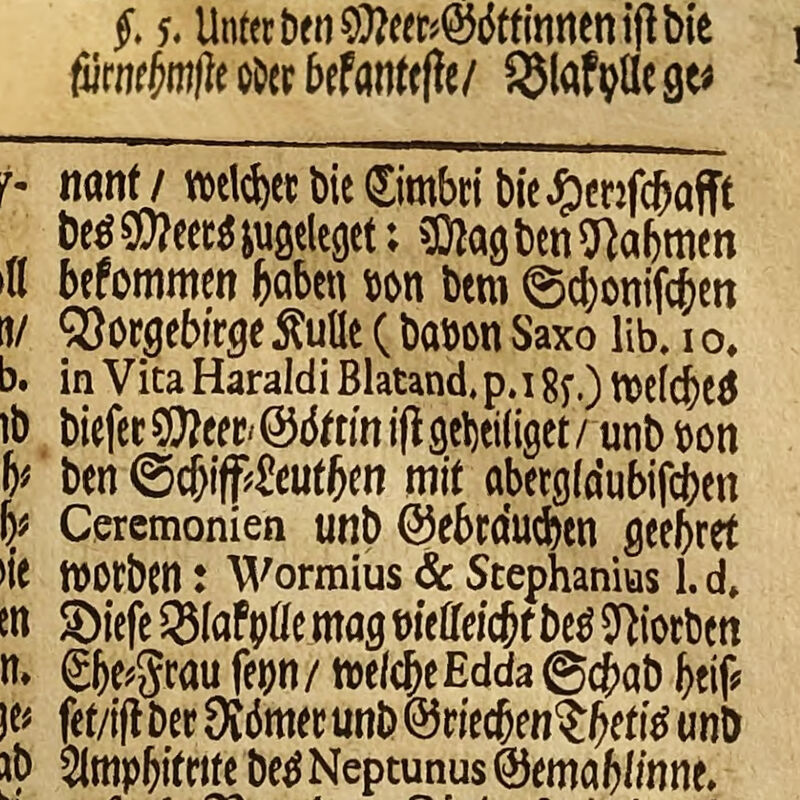 §. 5. Unter den Meer-Göttinnen ist die
fürnehmste oder bekanteste / Blakylle ge-
nant / welcher die Cimbri die Herrschafft
des Meers zugeleget: Mag den Nahmen
bekommen haben von dem Schonischen
Vorgebirge Kulle (davon Saxo lib. 10.
in Vita Haraldi Blatand. p. 185.) welches
dieser Meer-Göttin ist geheiliget / und von
den Schiff-Leuthen mit abergläubischen
Ceremonien und Gebräuchen geehret
worden: Wormius & Stephanius l. d.
Diese Blakylle mag vielleicht des Niorden
Ehe-Frau seyn / welche Edda Schad heis-
set / ist der Römer und Griechen Thetis und
Amphitrite des Neptunus Gemahlinne.